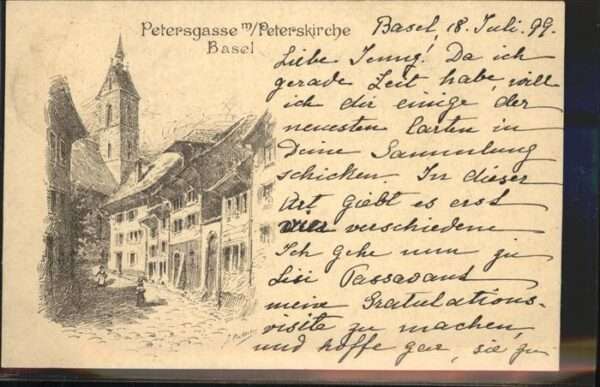 Petersgasse m/Peterskirche
Basel
Basel, 18. Juli. 99.
Liebe Jenny! Da ich
gerade Zeit habe, will
ich dir einige der
neuesten Carten in
Deine Sammlung
schicken. In dieser
Art giebt es erst
vier verschiedene
Ich gehe nun zu
Lisi Passavant
meine Gratulations-
visite zu machen,
und hoffe gar, sie zu